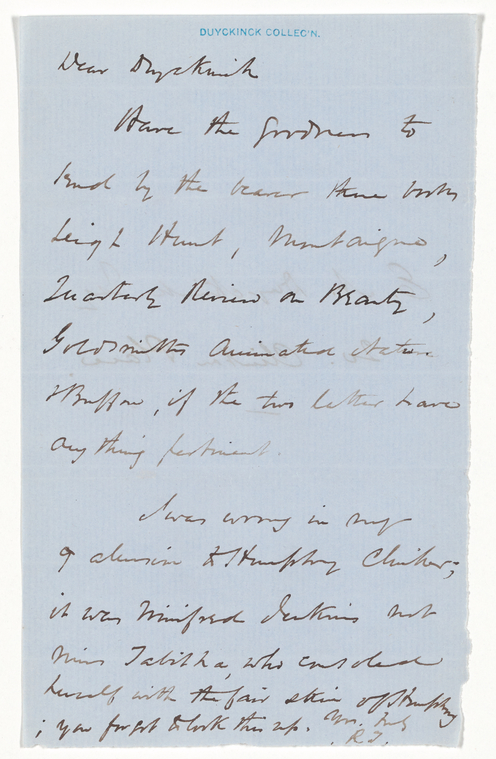 DUYCKINCK COLLEC'N.
Dear Duyckinck
Have the goodness to
send by the bearer these books
Leigh Hunt, Montaigne,
Quarterly Review on Beauty,
Goldsmiths Animated Nature
& Buffon, if the two latter have
any thing pertinent.
I was wrong in my
allusion to Humphry Clinker;
it was Winifred Jenkins not
Miss Tabitha, who consoled
herself with the fair skin of Humphry
; you forgot to look this up. Yrs. truly